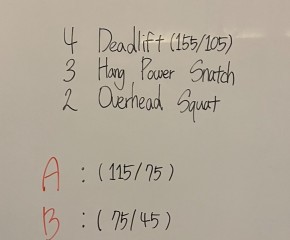 4 Deadlift (155/105)
3 Hang Power Snatch
2 Overhead Squat
A : (115/75)
B : (75/45)